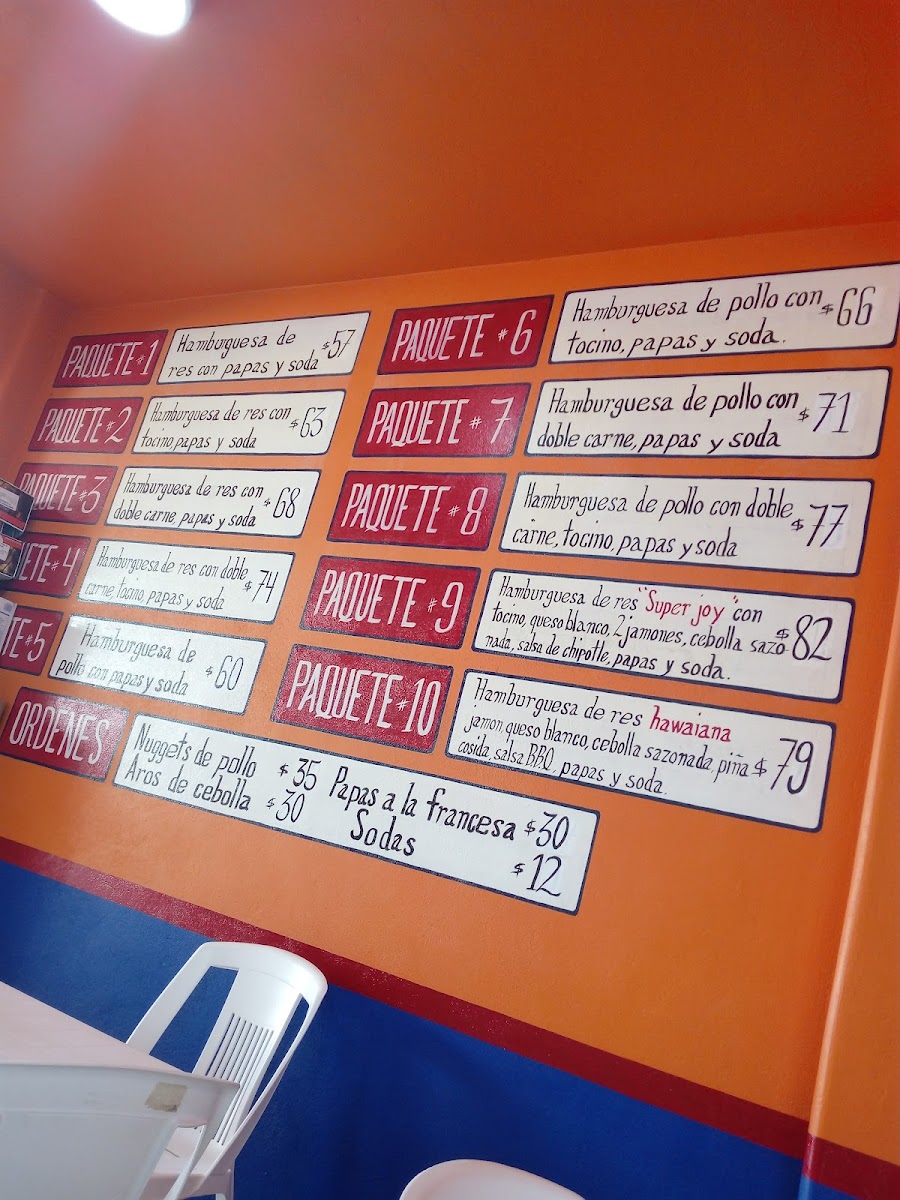 PAQUETE #1
Hamburguesa de
res con papas y soda $57
PAQUETE #2
Hamburguesa de res con
tocino, papas y soda $63
PAQUETE #3
Hamburguesa de res con
doble carne, papas y soda $68
ETE #4
Hamburguesa de res con doble
carne, tocino, papas y soda $74
TE #5
Hamburguesa de
pollo con papas y soda $60
PAQUETE #6
Hamburguesa de pollo con
tocino, papas y soda. $66
PAQUETE #7
Hamburguesa de pollo con
doble carne, papas y soda $71
PAQUETE #8
Hamburguesa de pollo con doble
carne, tocino, papas y soda $77
PAQUETE #9
Hamburguesa de res "Super joy" con
tocino, queso blanco, 2 jamones, cebolla sazo-
nada, salsa de chipotle, papas y soda. $82
PAQUETE #10
Hamburguesa de res hawaiana
jamon, queso blanco, cebolla sazonada, piña
cosida, salsa BBQ, papas y soda. $79
ORDENES
Nuggets de pollo $35 Papas a la francesa $30
Aros de cebolla $30 Sodas $12